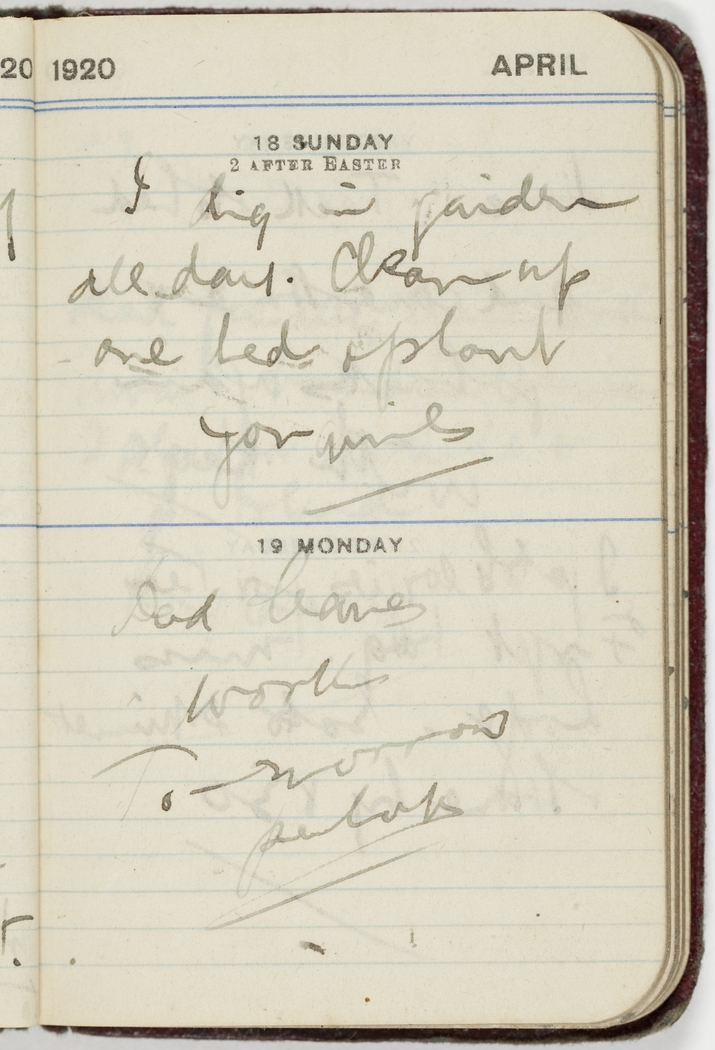 20 1920 APRIL
18 SUNDAY
2 AFTER EASTER
I dig in garden
all day. Clean up
one bed & plant
jonquils
19 MONDAY
Dad leaves
work
To-morrow